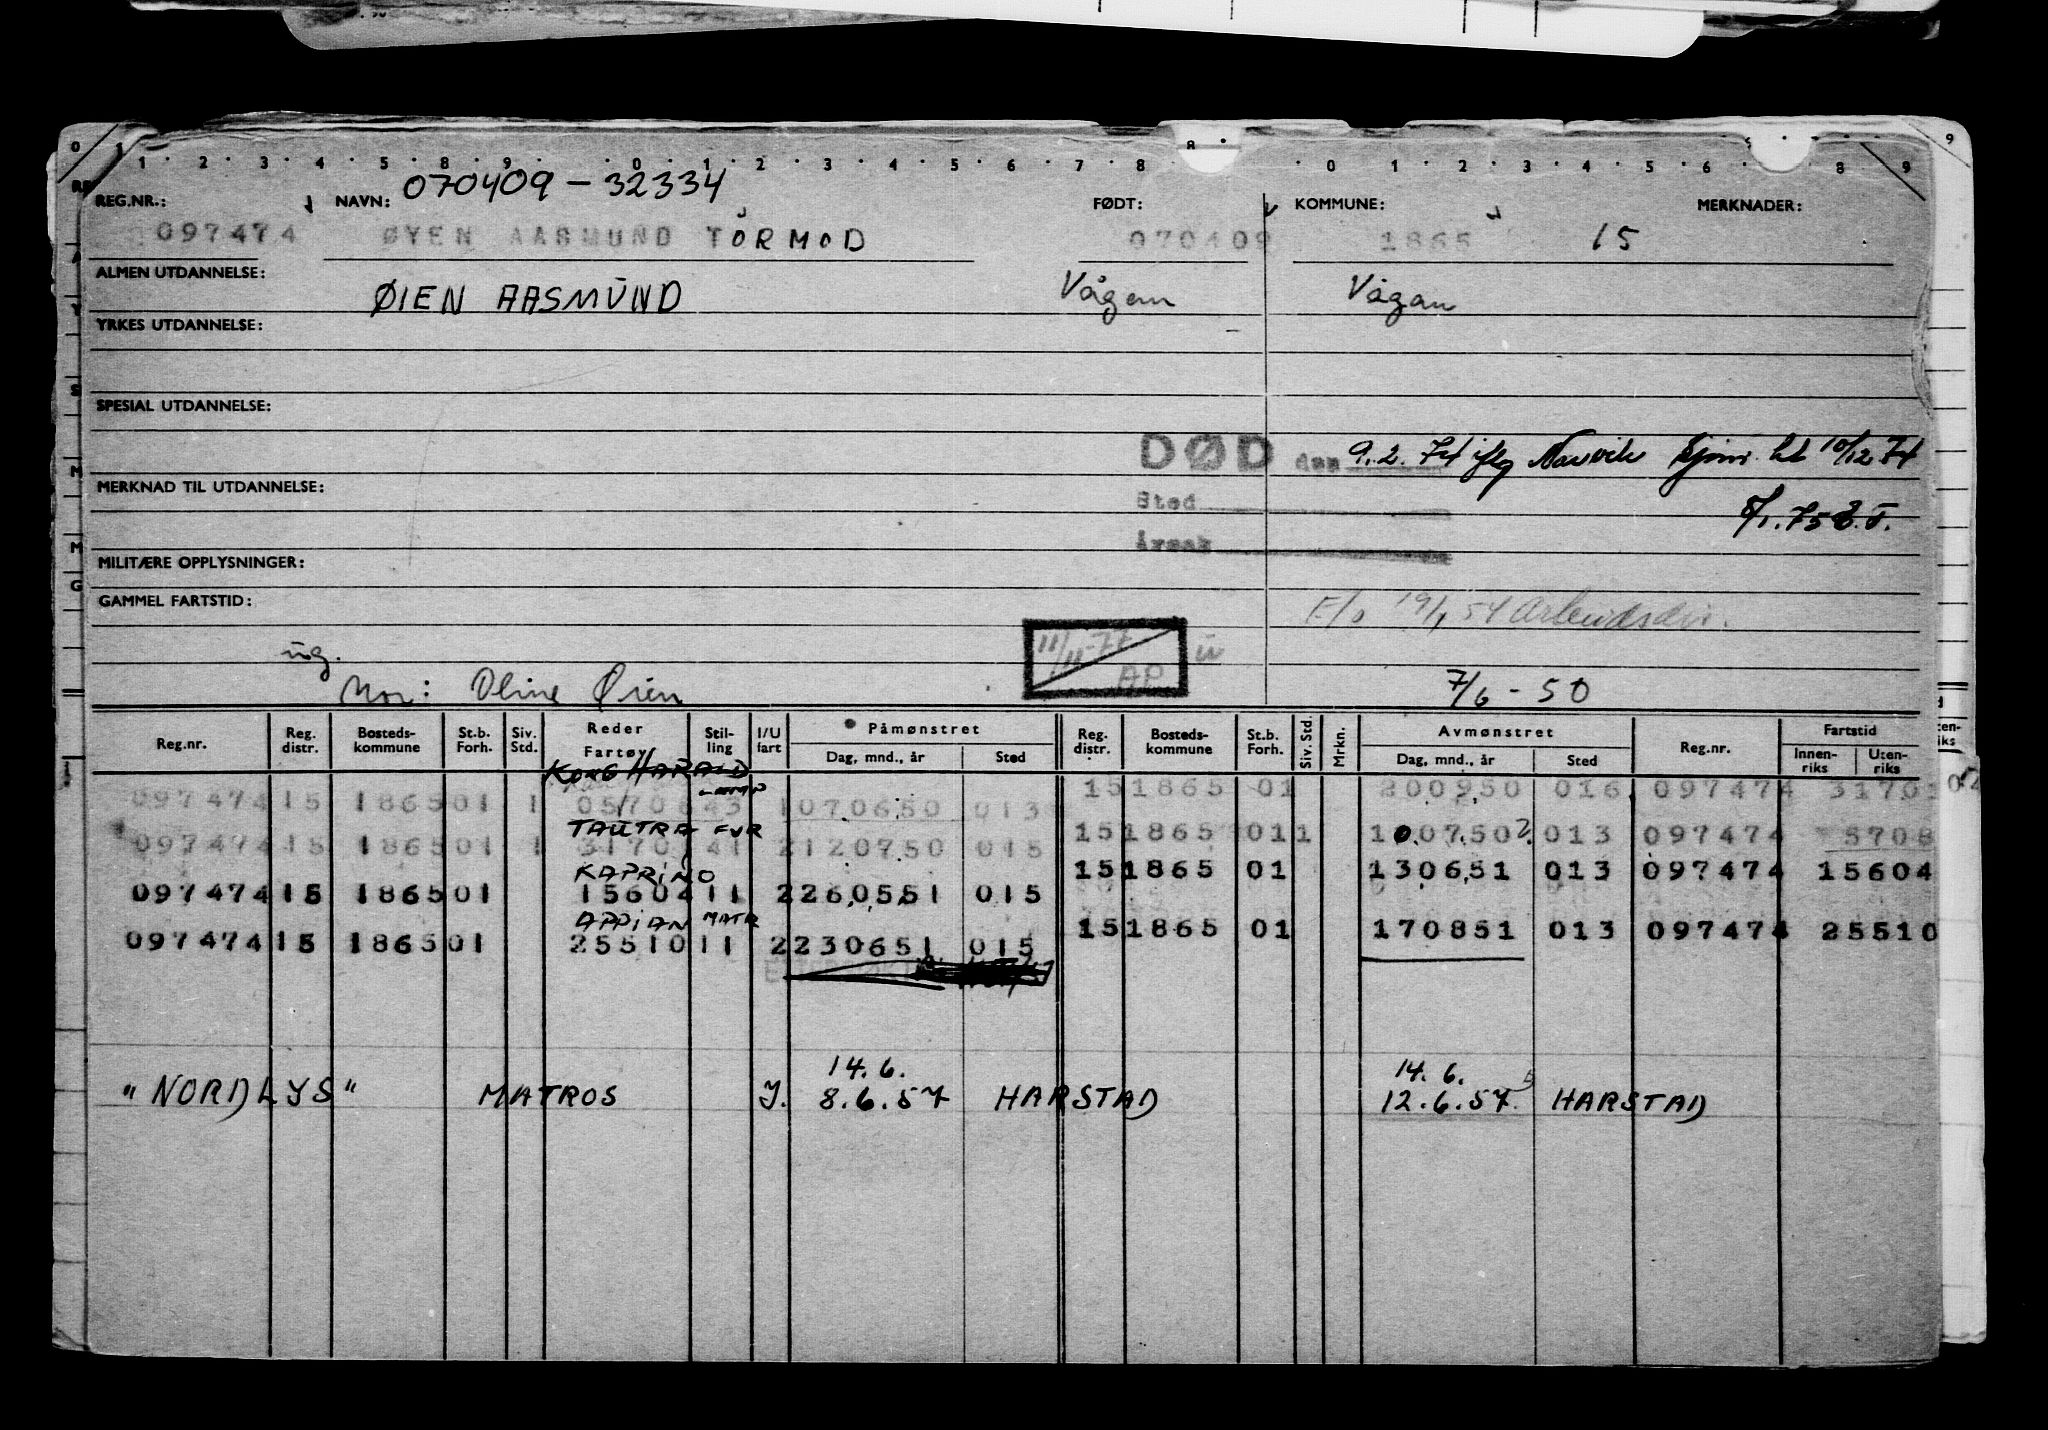 070409 - 32334
REG.NR.: NAVN: FØDT: KOMMUNE: MERKNADER:
097474 ØYEN AASMUND TORMOD 070409 1865 15
ALMEN UTDANNELSE:
ØIEN AASMUND Vågan Vågan
YRKES UTDANNELSE:
SPESIAL UTDANNELSE:
DØD den 9.2.74 iflg Narvik Sjøm. 10/12 74
MERKNAD TIL UTDANNELSE:
Sted
8/1.75
Årsak
MILITÆRE OPPLYSNINGER:
GAMMEL FARTSTID:
F/o 19/1 54 Arbeidsdir.
11/11-77 AP
ug.
Mor: Oline Øien 7/6 - 50
Reg.nr. Reg. distr. Bosteds-kommune St.b. Forh. Siv. Std. Reder Fartøy Stil-ling I/U fart Påmønstret Dag, mnd., år Sted Reg. distr. Bosteds-kommune St.b. Forh. Siv. Std. Mrkn. Avmønstret Dag, mnd., år Sted Reg.nr. Fartstid Innen-riks Uten-riks
KONG HARALD
097474 15 1865 01 1 05708 43 1 070650 013 15 1865 01 200950 016 097474 31701
TAUTRA FYR
097474 15 1865 01 1 31701 41 2 120750 015 15 1865 01 1 100750? 013 097474 5708
KAPRINO
097474 15 1865 01 15604 11 2 260551 015 15 1865 01 130651 013 097474 15604
APPIAN MATR
097474 15 1865 01 25510 11 2 230651 015 15 1865 01 170851 013 097474 25510
14.6. 14.6.
"NORDLYS" MATROS I. 8.6.57 HARSTAD 12.6.57. HARSTAD